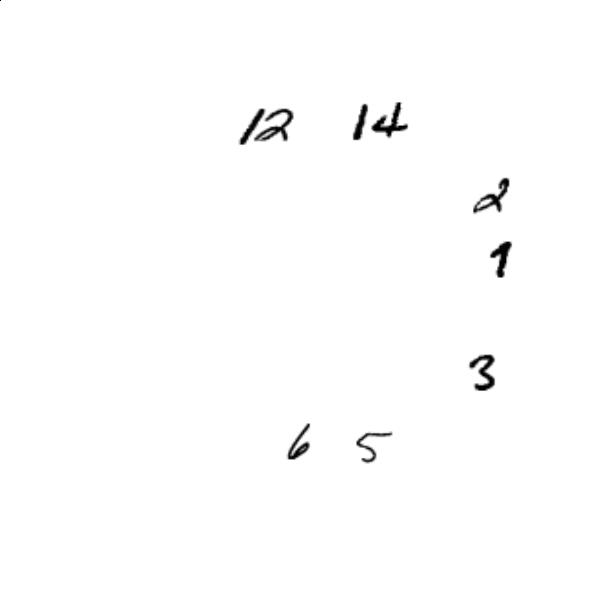 12 14
2
1
3
6 5